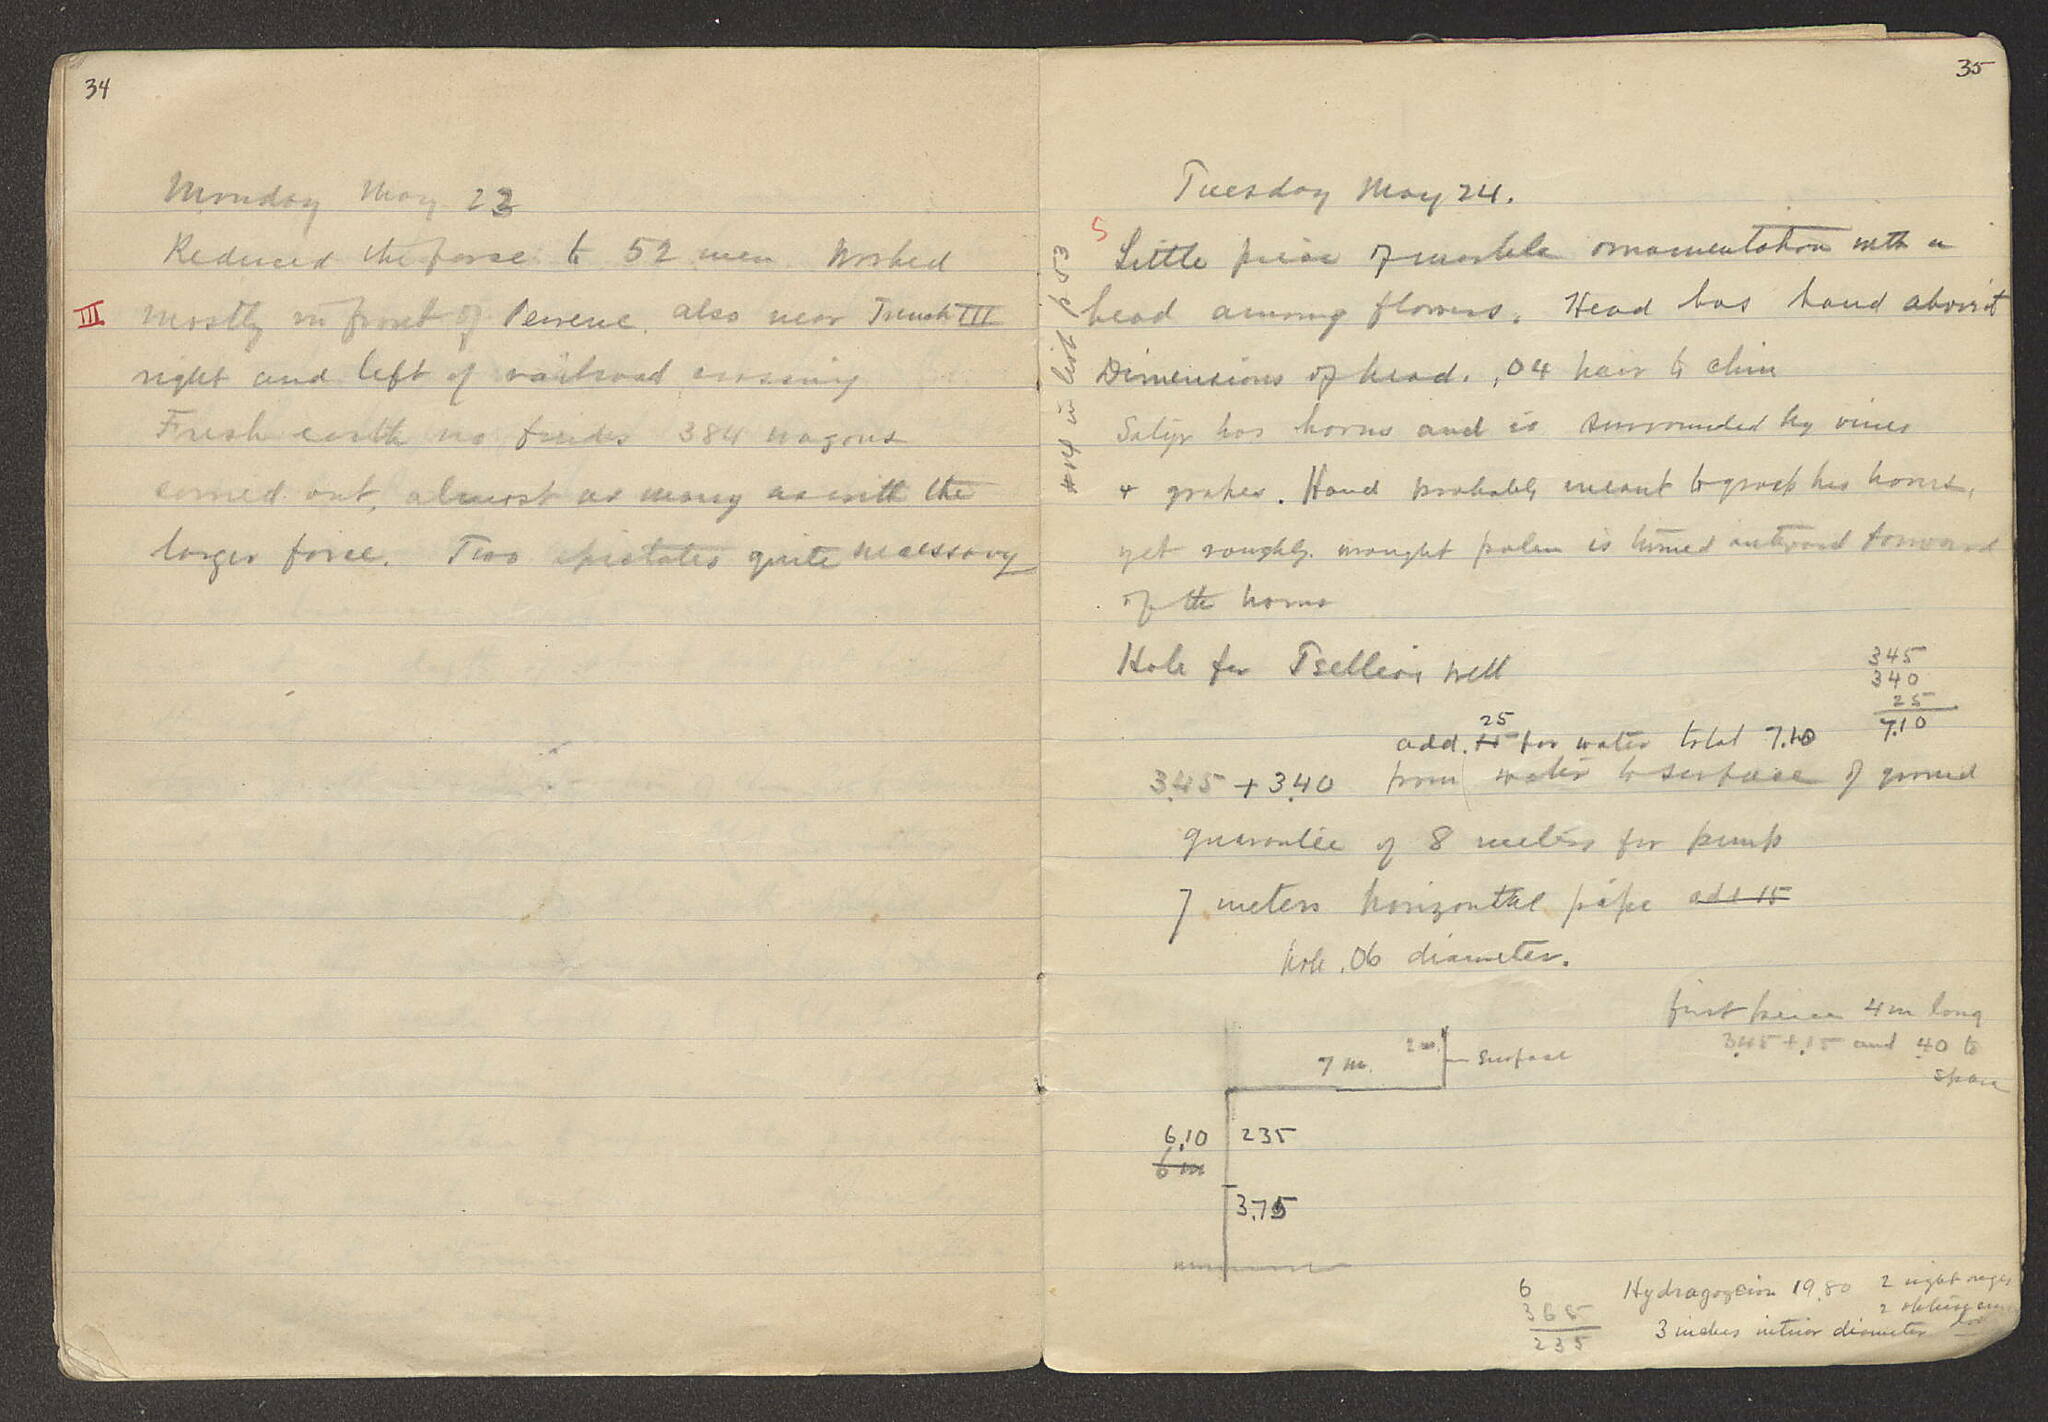 34
Monday May 23
Reduced the force to 52 men Worked
III mostly in front of Peirene. also near Trench III
right and left of railroad crossing
Fresh earth no finds 384 wagons
carried out, almost as many as with the
larger force. Two epistates quite necessary
35
Tuesday May 24.
5
#14 in list p 53
Little piece of marble ornamentation with a
head among flowers. Head has hand above it
Dimensions of head. .04 hair to chin
Satyr has horns and is surrounded by vines
+ grapes. Hand probably meant to grasp his horns,
yet roughly wrought palm is turned outward forward
of the horns
Hole for Tsellios well
345
340
25
7.10
25
add. 15 for water total 7.10
3.45 + 3.40 from water to surface of ground
guarantee of 8 meters for pump
7 meters horizontal pipe add 15
hole .06 diameter.
first piece 4m long
3.45 + .15 and .40 to
spare
7 m. 2 m. surface
6.10 235
6 m
3.75
6
365
235
Hydragogeion 19.80 2 right
2 obtuse
3 inches interior diameter